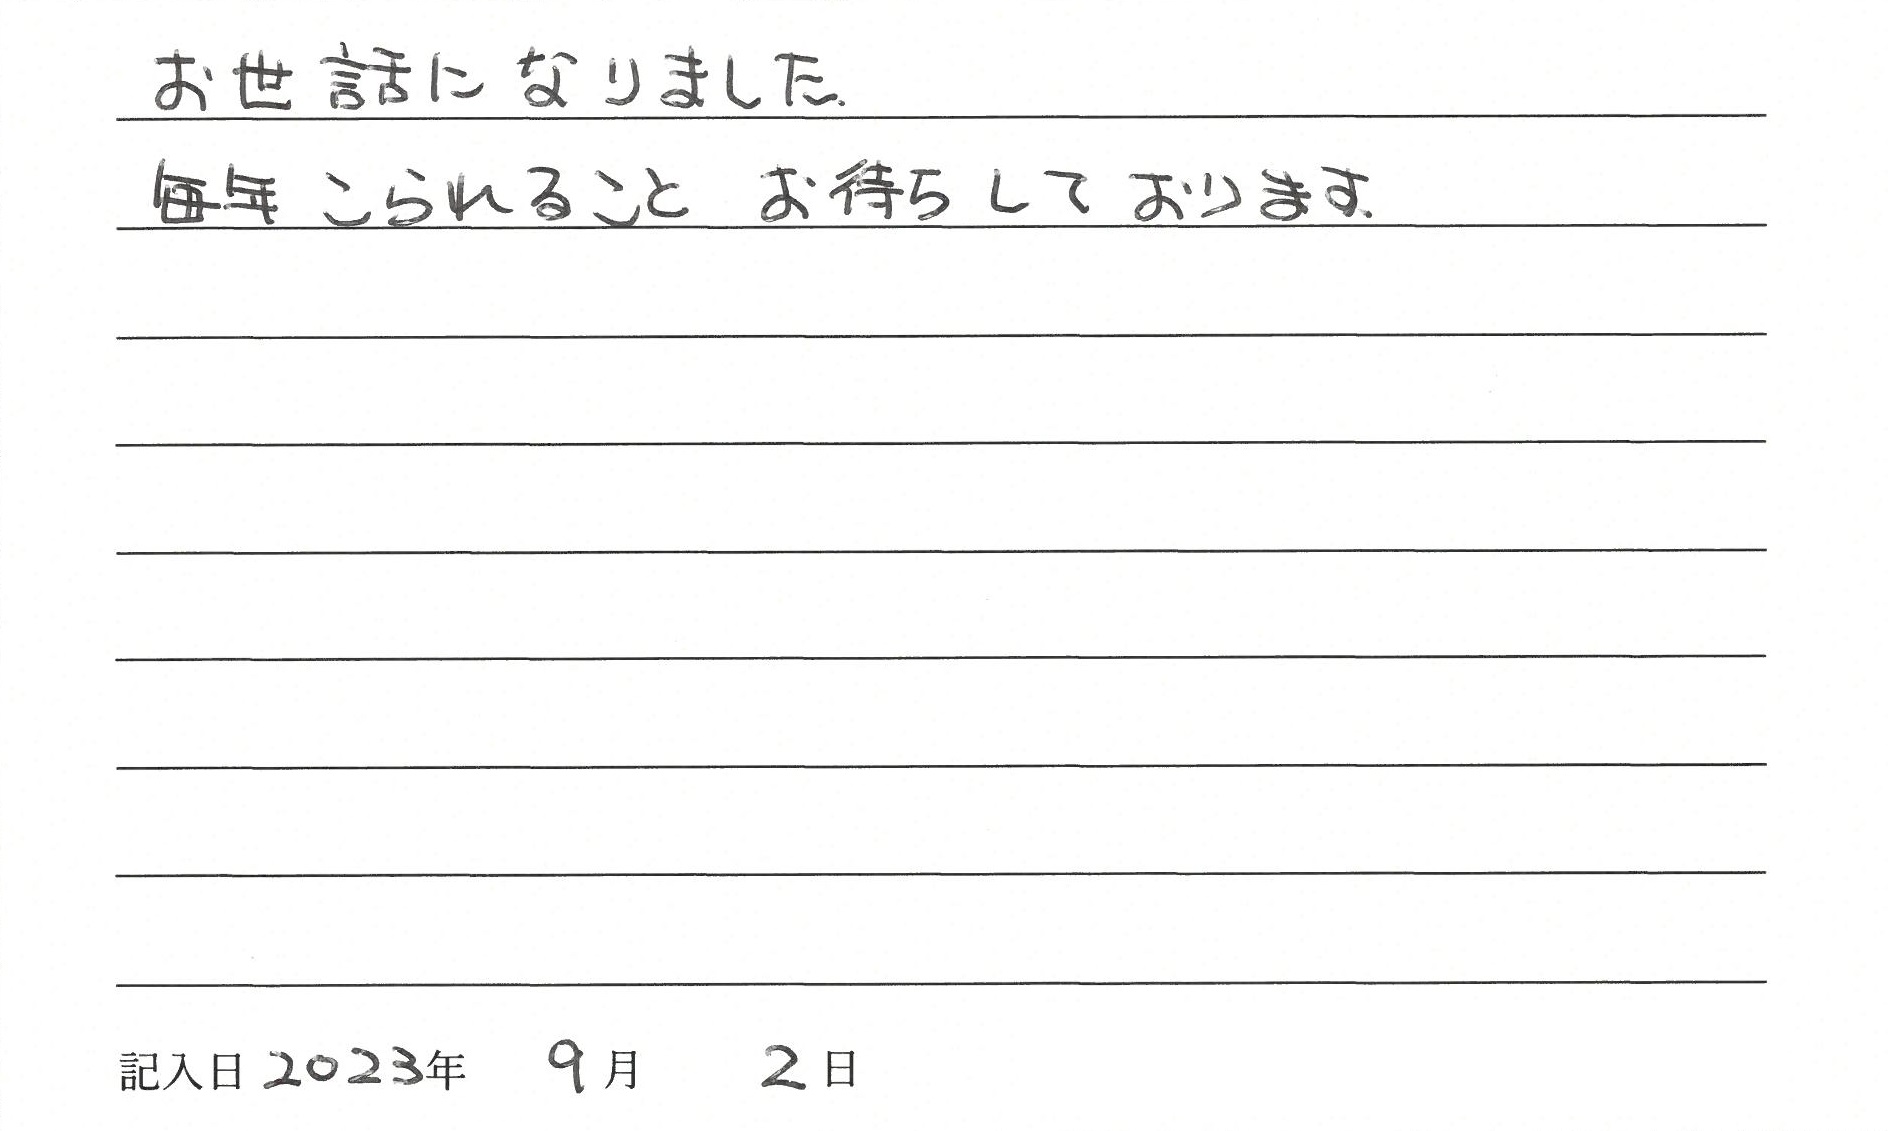 お世話になりました.
毎年こられることお待ちしております.
記入日 2023年 9月 2日